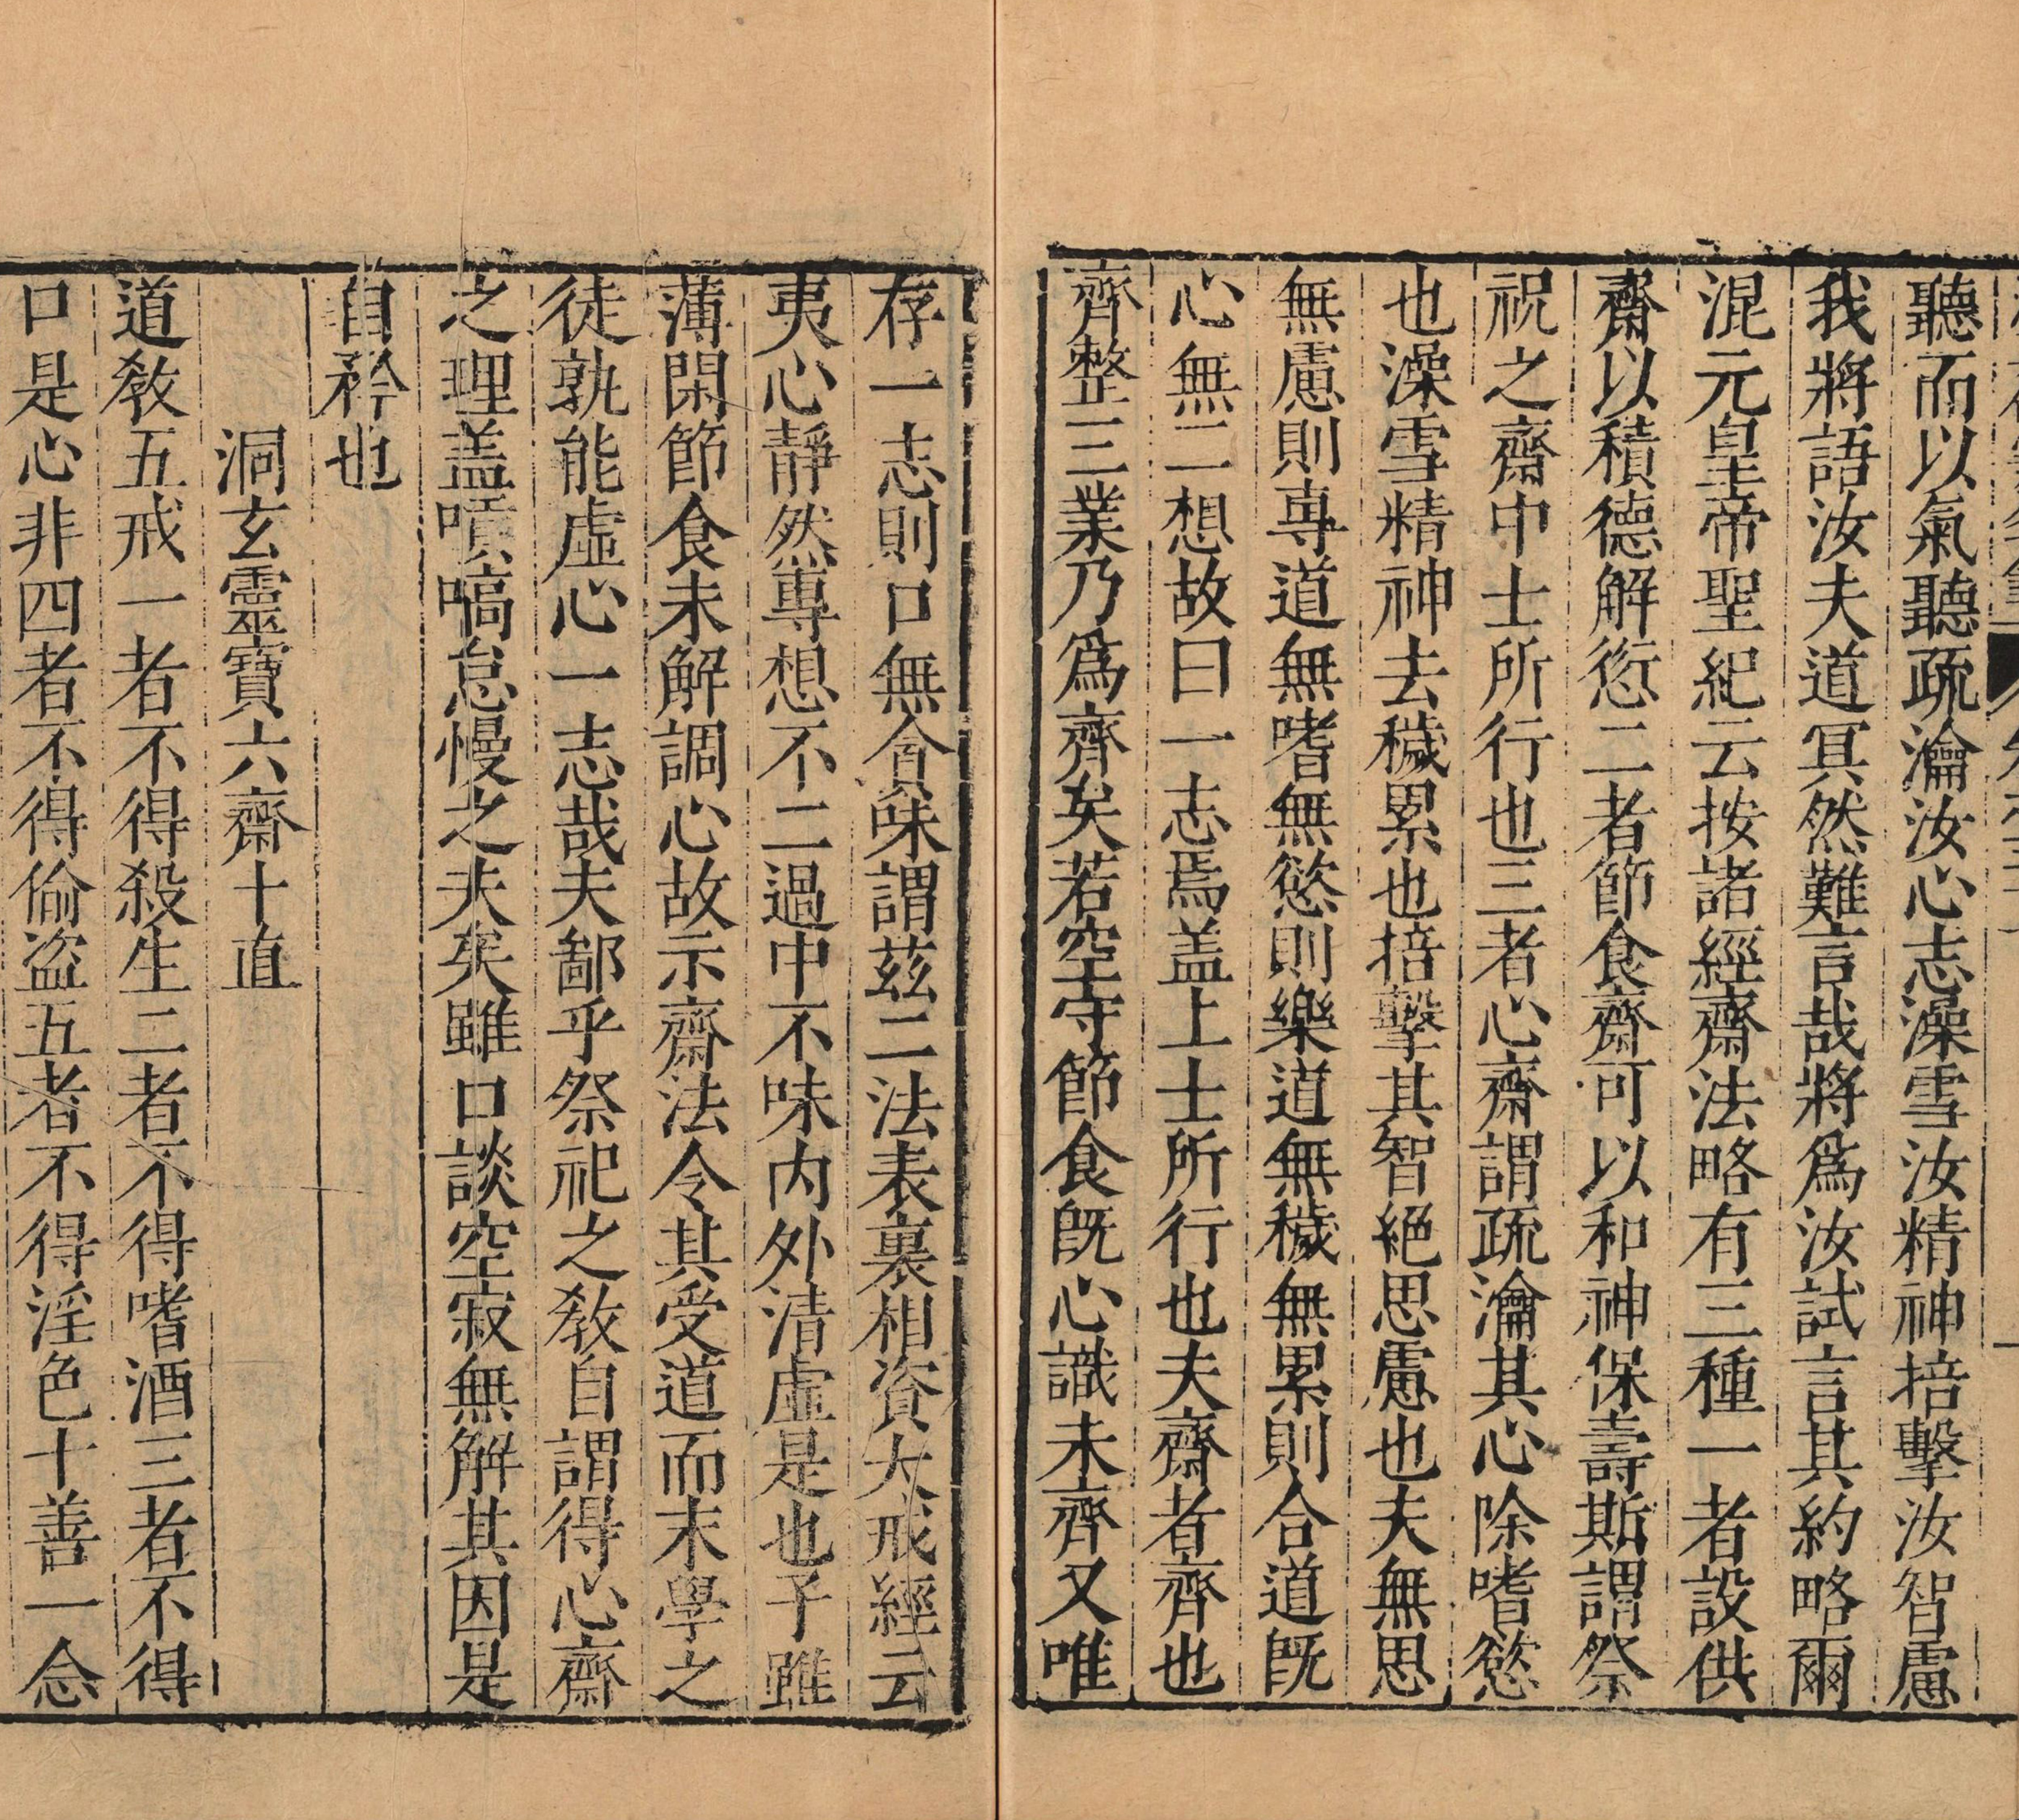 聽而以氣聽疏瀹汝心志澡雪汝精神掊擊汝智慮
我將語汝夫道冥然難言哉將爲汝試言其約略爾
混元皇帝聖紀云按諸經齋法略有三種一者設供
齋以積德解愆二者節食齋可以和神保壽斯謂祭
祝之齋中士所行也三者心齋謂疏瀹其心除嗜慾
也澡雪精神去穢累也掊擊其智絕思慮也夫無思
無慮則專道無嗜無慾則樂道無穢無累則合道旣
心無二想故曰一志焉盖上士所行也夫齋者齊也
齊整三業乃爲齊矣若空守節食旣心識未齊又唯
存一志則口無貪味謂茲二法表裏相資大戒經云
夷心靜然專想不二過中不味內外清虛是也予雖
薄閑節食未解調心故示齋法令其受道而末學之
徒孰能虛心一志哉夫鄙乎祭祀之敎自謂得心齋
之理盖嘳嗃怠慢之夫矣雖口談空寂無解其因是
自矜也
洞玄靈寶六齋十直
道敎五戒一者不得殺生二者不得嗜酒三者不得
口是心非四者不得偷盜五者不得淫色十善一念